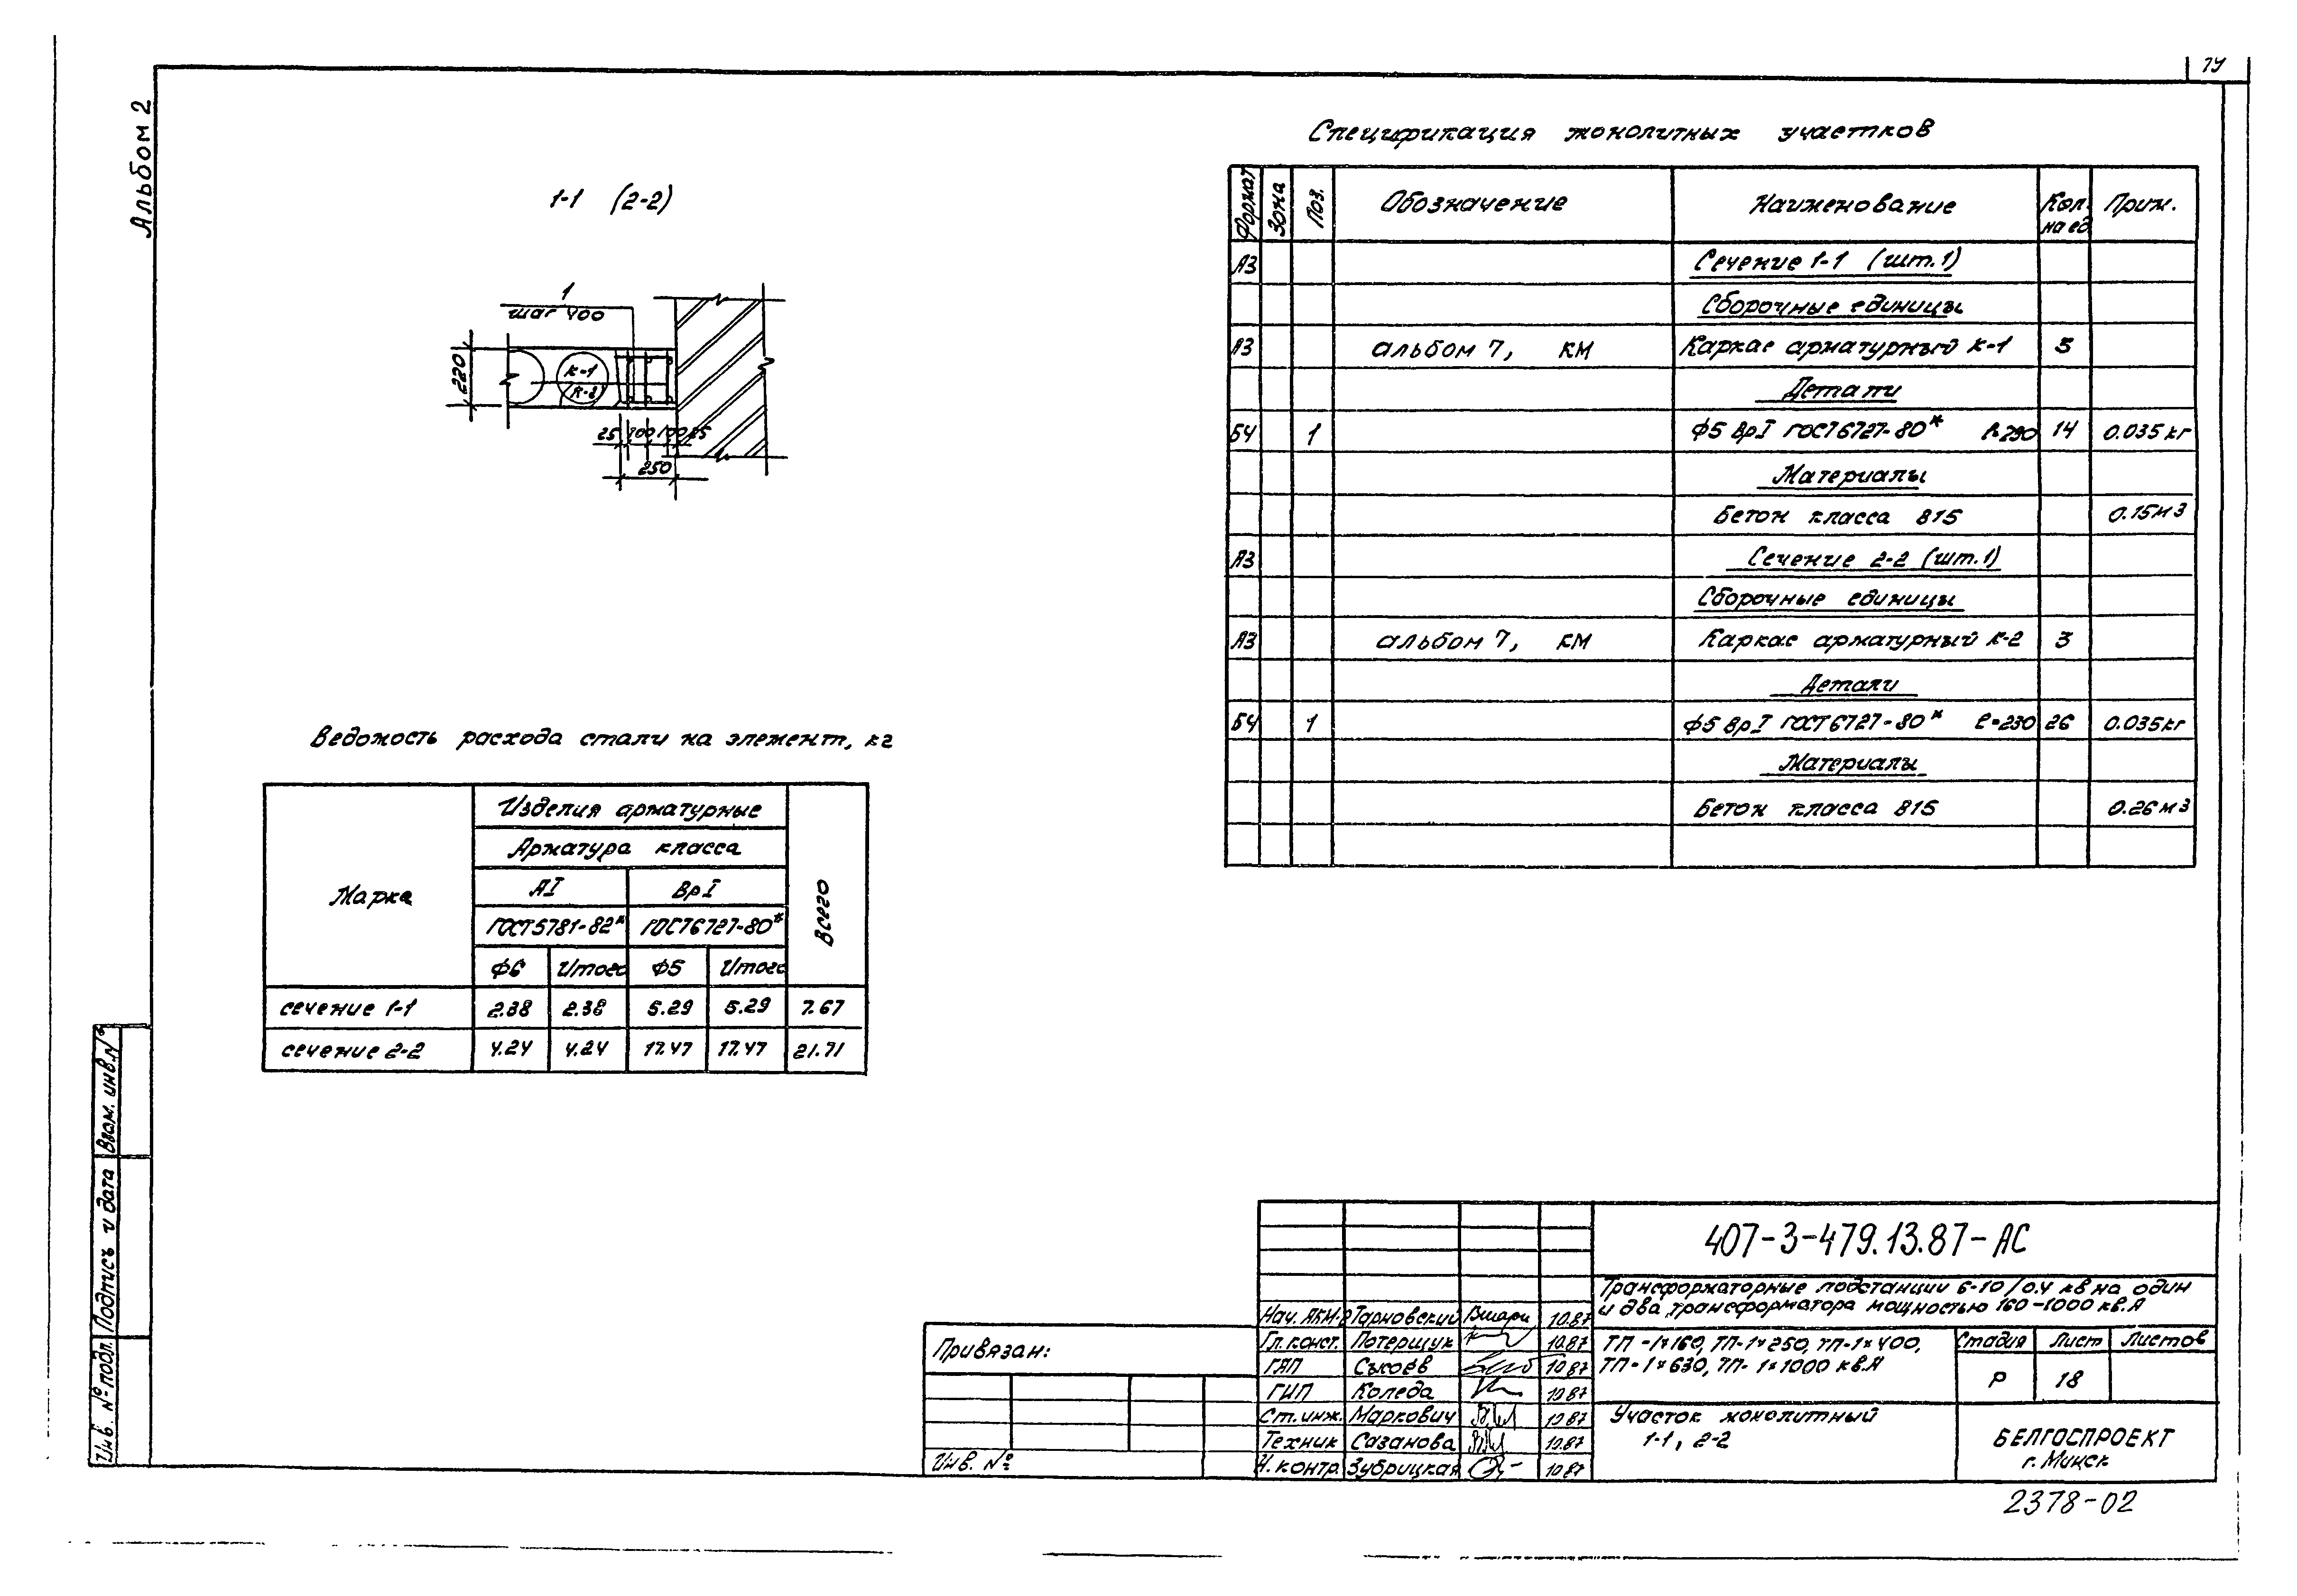 19
Альбом 2
1-1 (2-2)
1
шаг 400
220
К-1
К-2
25 100 100 25
250
Спецификация монолитных участков
Формат Зона Поз. Обозначение Наименование Кол. на ед. Прим.
А3 Сечение 1-1 (шт.1)
Сборочные единицы
А3 альбом 7, КМ Каркас арматурный К-1 3
Детали
БЧ 1 Ф5 ВрI ГОСТ 6727-80* 14 0.035 кг
Материалы
Бетон класса В15 0.15 м3
А3 Сечение 2-2 (шт.1)
Сборочные единицы
А3 альбом 7, КМ Каркас арматурный К-2 3
Детали
БЧ 1 Ф5 ВрI ГОСТ 6727-80* ℓ=230 26 0.035кг
Материалы
Бетон класса В15 0.26 м3
Ведомость расхода стали на элемент, кг
Марка Изделия арматурные Всего
Арматура класса
АI ВрI
ГОСТ 5781-82* ГОСТ 6727-80*
Ф6 Итого Ф5 Итого
сечение 1-1 2.38 2.38 5.29 5.29 7.67
сечение 2-2 4.24 4.24 17.47 17.47 21.71
Инв. № подл. Подпись и дата Взам. инв. №
Привязан:
Инв. №
407-3-479.13.87-АС
Трансформаторные подстанции 6-10/0.4 кв на один
и два трансформатора мощностью 160-1000 кв.А
Нач. АКМ-2 Тарновский 10.87
Гл. конст. Потерщук 10.87
ГАП Сысоев 10.87
ГИП Коледа 10.87
Ст. инж. Маркович 10.87
Техник Сазанова 10.87
Н. контр. Зубрицкая 10.87
ТП-1×160, ТП-1×250, ТП-1×400,
ТП-1×630, ТП-1×1000 кв.А
Стадия Лист Листов
Р 18
Участок монолитный
1-1, 2-2
БЕЛГОСПРОЕКТ
г. Минск
2378-02